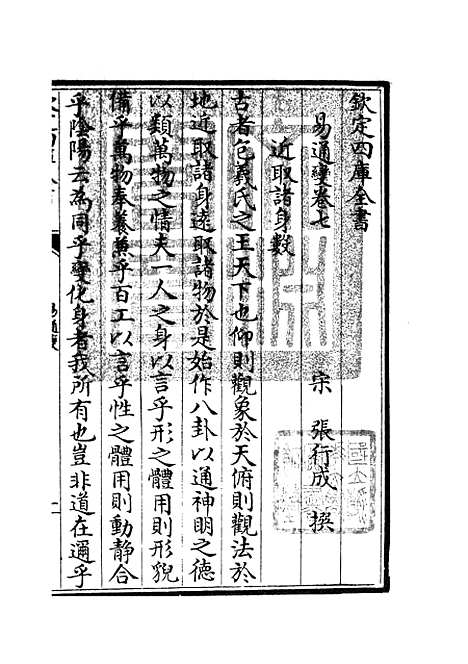 欽定四庫全書
易通變卷七
宋 張行成 撰
近取諸身數
古者包羲氏之王天下也仰則觀象於天俯則觀法於
地近取諸身遠取諸物於是始作八卦以通神明之德
以類萬物之情夫一人之身以言乎形之體用則形貌
備乎萬物奉養兼乎百工以言乎性之體用則動靜合
乎陰陽云為同乎變化身者我所有也豈非道在邇乎
易通變